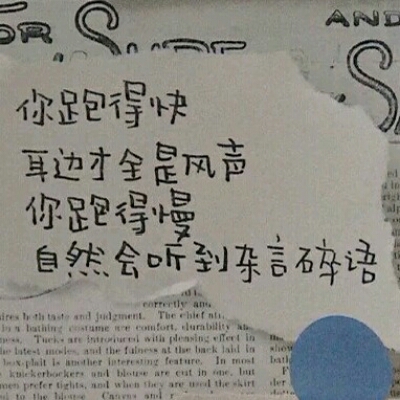 FOR SURE
AND
S
你跑得快
耳边才全是风声
你跑得慢
自然会听到杂言碎语
correctly and
ires both taste and judgment. The chief att
in a bathing costume are comfort, durability an
ness. Tucks are introduced with pleasing effect in
he latest modes, and the fulness at the back laid in
box-plait is another interesting feature. In most
knickerbockers and blouse are cut in one, but
men prefer tights, and when they are used the skirt
to the blouse. Canvas and